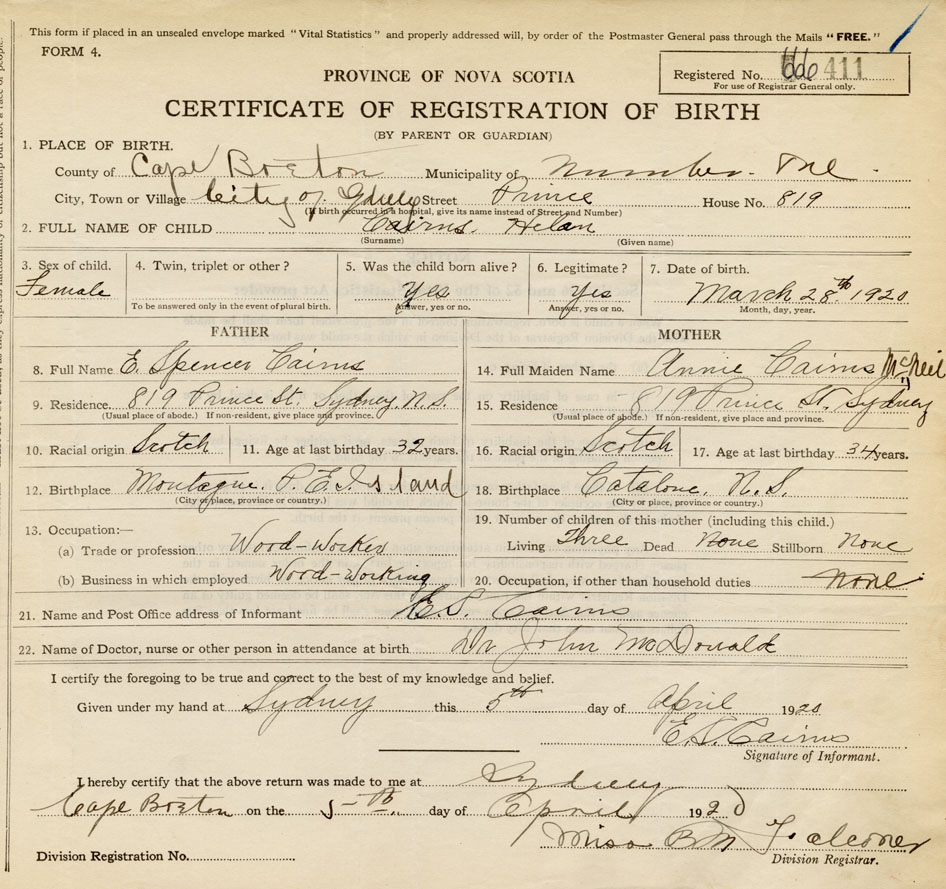 This form if placed in an unsealed envelope marked "Vital Statistics" and properly addressed will, by order of the Postmaster General pass through the Mails "FREE."
FORM 4.
PROVINCE OF NOVA SCOTIA
Registered No. 411
For use of Registrar General only.
CERTIFICATE OF REGISTRATION OF BIRTH
(BY PARENT OR GUARDIAN)
1. PLACE OF BIRTH.
County of Cape Breton Municipality of Number. One.
City, Town or Village City of Sydney Street Prince House No. 819
(If birth occurred in a hospital, give its name instead of Street and Number)
2. FULL NAME OF CHILD Cairns. Helen
(Surname) (Given name)
3. Sex of child. 4. Twin, triplet or other? 5. Was the child born alive? 6. Legitimate? 7. Date of birth.
Female Yes Yes March 28th 1920
To be answered only in the event of plural birth. Answer, yes or no. Answer, yes or no. Month, day, year.
FATHER MOTHER
8. Full Name E. Spencer Cairns 14. Full Maiden Name Annie Cairns McNeil
9. Residence 819 Prince St, Sydney N.S. 15. Residence 819 Prince St, Sydney
(Usual place of abode. If non-resident, give place and province.) (Usual place of abode.) If non-resident, give place and province.
10. Racial origin Scotch 11. Age at last birthday 32 years. 16. Racial origin Scotch 17. Age at last birthday 34 years.
12. Birthplace Montague. P.E. Island 18. Birthplace Catalone, N.S.
(City or place, province or country.) (City or place, province or country.)
13. Occupation:— 19. Number of children of this mother (including this child.)
(a) Trade or profession Wood-Worker Living Three Dead None Stillborn None
(b) Business in which employed Wood-Working 20. Occupation, if other than household duties None
21. Name and Post Office address of Informant E.S. Cairns
22. Name of Doctor, nurse or other person in attendance at birth Dr John McDonald
I certify the foregoing to be true and correct to the best of my knowledge and belief.
Given under my hand at Sydney this 5th day of April 1920
E.S. Cairns
Signature of Informant.
I hereby certify that the above return was made to me at Sydney
Cape Breton on the 5th. day of April 1920
Miss B M Falconer
Division Registration No. Division Registrar.